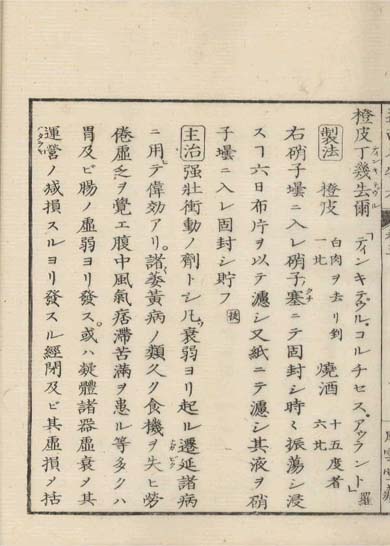 橙皮丁幾去爾「ティンキテゥル、コルチセス、アゥラント」羅
製法 橙皮 白肉ヲ去リ剉 一比 焼酒 十五度者 六比
右硝子壜ニ入レ硝子塞ニテ固封シ時々振蕩シ浸
スヿ六日布片ヲ以テ濾シ又紙ニテ濾シ其液ヲ硝
子壜ニ入レ固封シ貯フ
主治 强壮衝動ノ劑トシ凡衰弱ヨリ起ル遷延諸病
ニ用テ偉効アリ。諸委黄病ノ類久ク食機ヲ失ヒ勞
倦虚乏ヲ覚エ腹中風氣痞滞苦滿ヲ患ル等多クハ
胃及ビ膓ノ虚弱ヨリ發ス。或ハ凝體諸器虚衰ヲ其
運營ノ減損スルヨリ發スル經閉及ビ其虚損ノ括